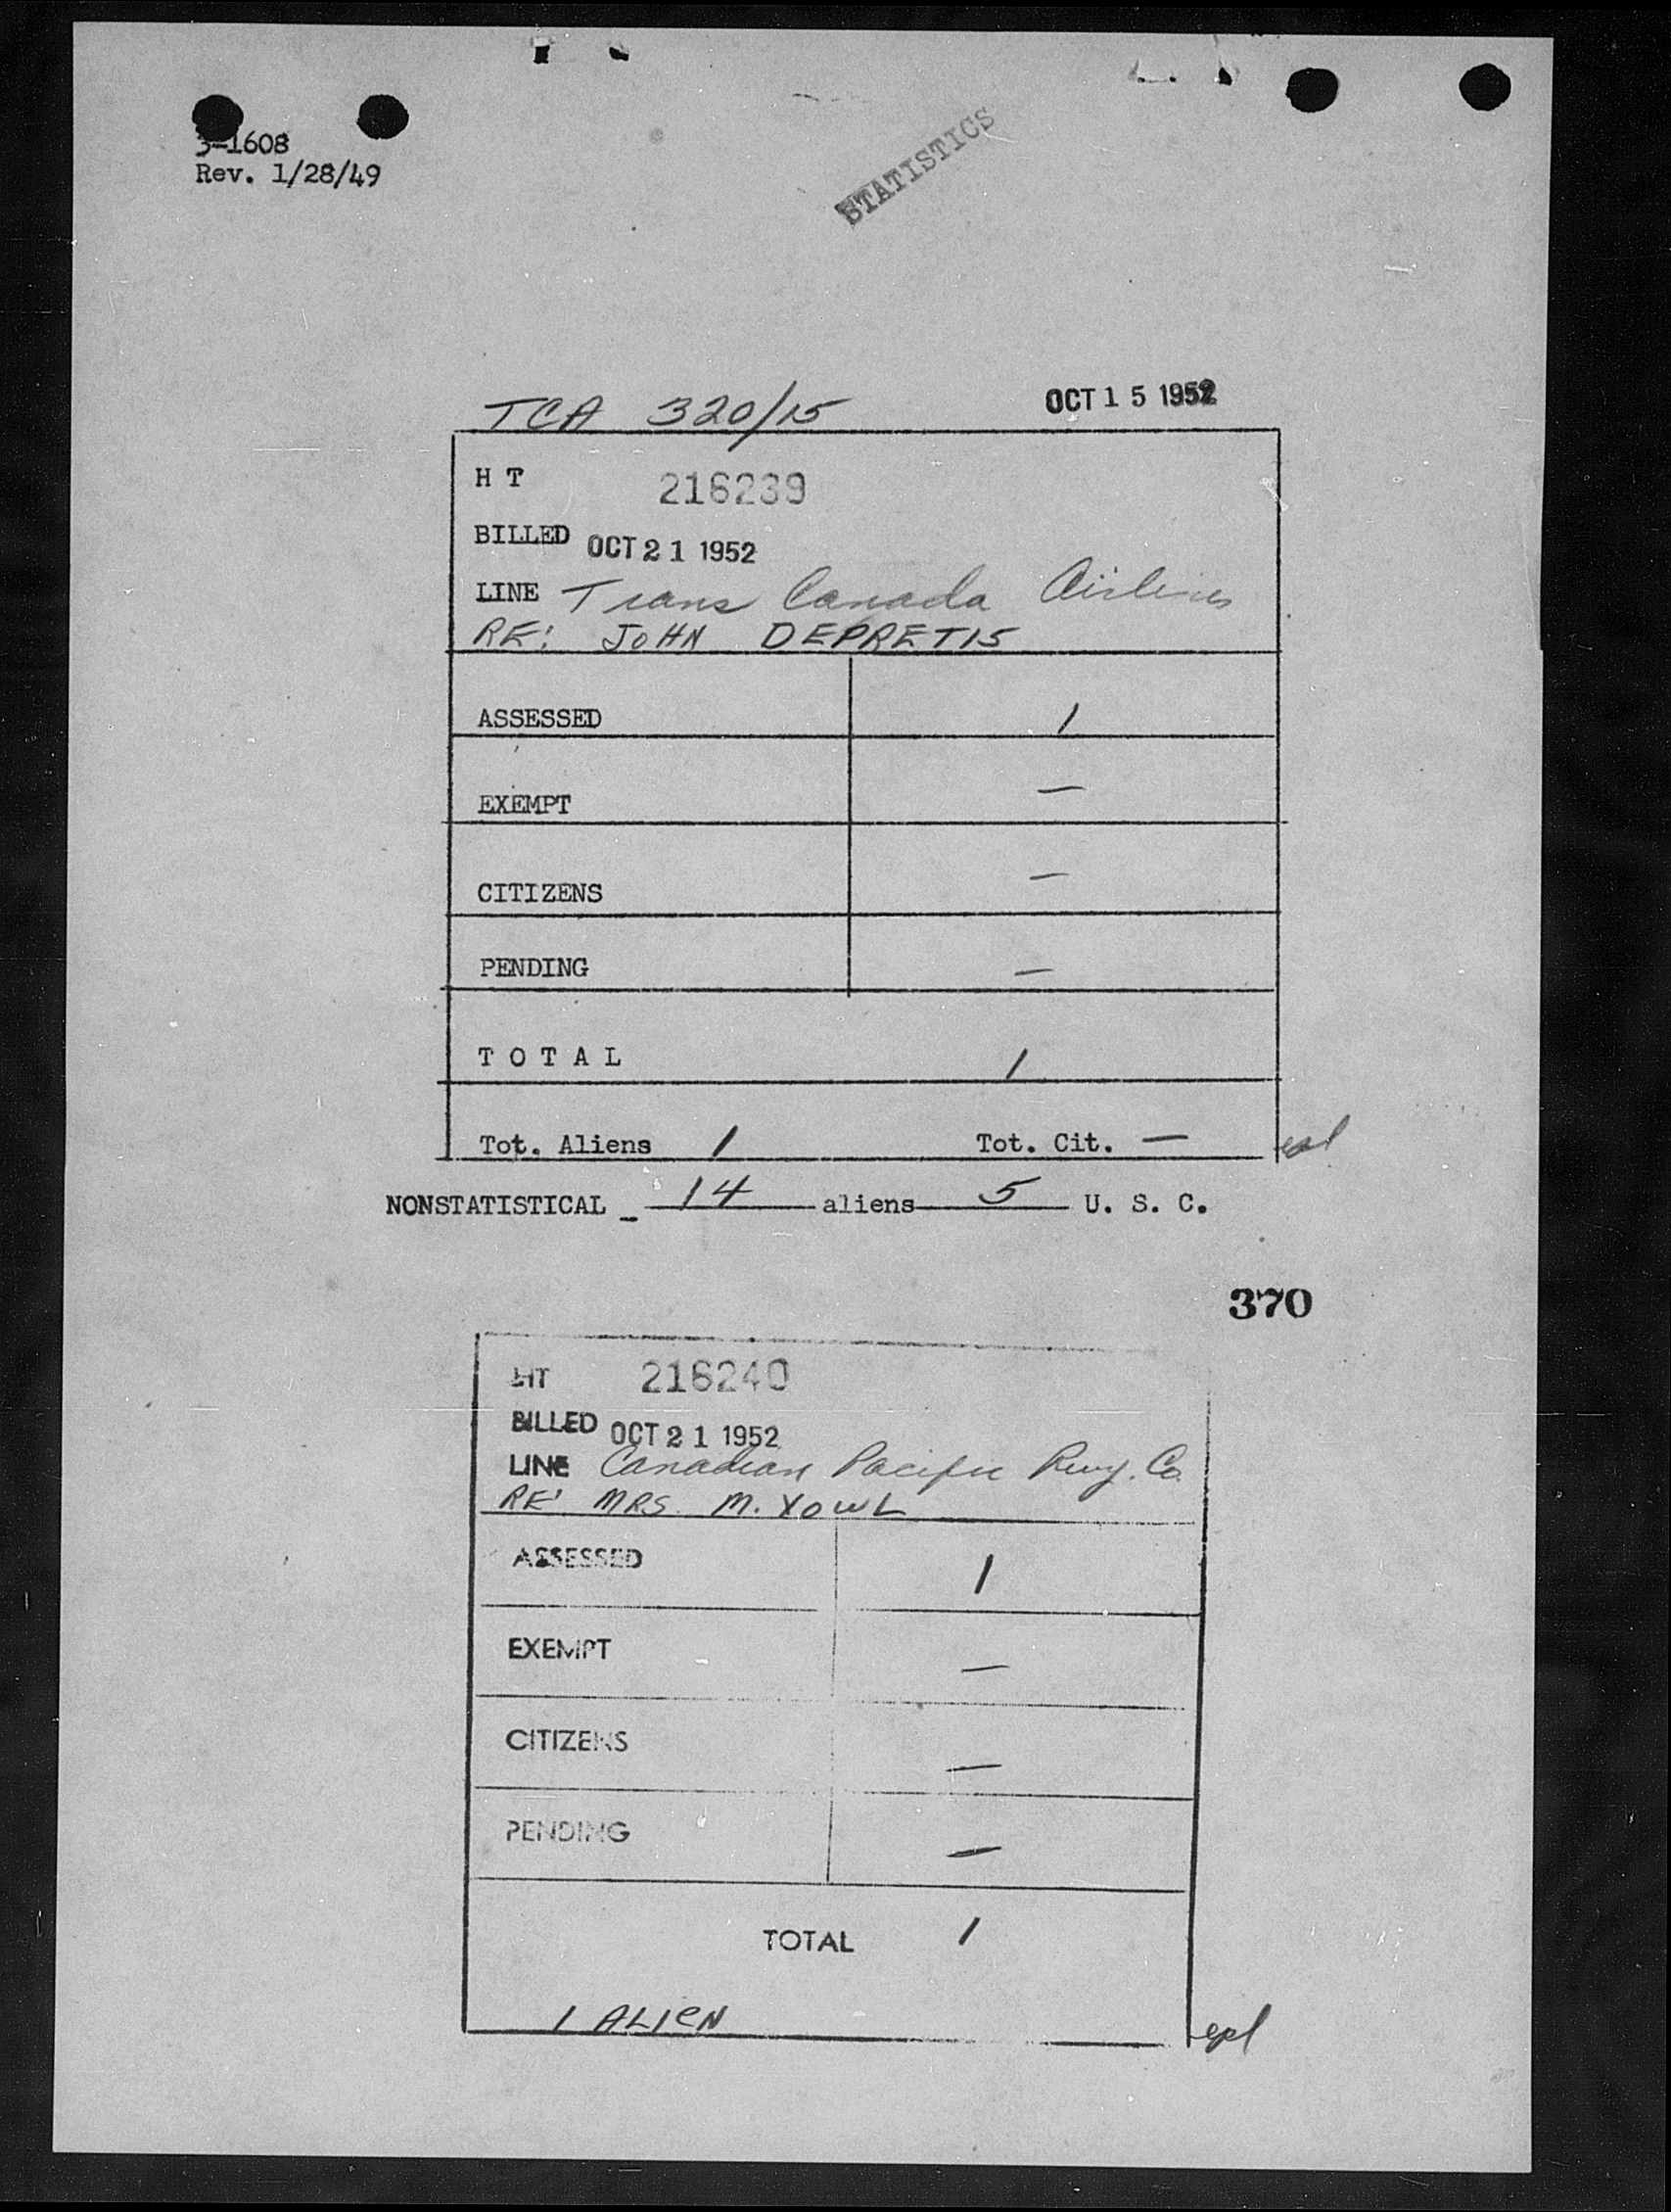 3-1608
Rev. 1/28/49
STATISTICS
TCA 320/15 OCT 15 1952
H T 216239
BILLED OCT 21 1952
LINE Trans Canada Airlines
RE: JOHN DEPRETIS
ASSESSED 1
EXEMPT —
CITIZENS —
PENDING —
T O T A L 1
Tot. Aliens 1 Tot. Cit. —
NONSTATISTICAL - 14 aliens 5 U. S. C.
370
HT 216240
BILLED OCT 21 1952
LINE Canadian Pacific Rwy. Co.
RE: MRS. M. YOWL
ASSESSED 1
EXEMPT —
CITIZENS —
PENDING —
TOTAL 1
1 ALIEN epl